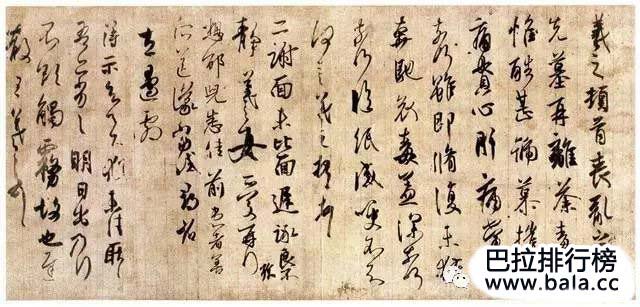 羲之頓首喪亂之
先墓再離荼毒
惟酷甚號慕摧
痛貫心肝痛當
奈何雖即脩復未獲
奔馳哀毒益深奈何
奈何臨紙感哽不知
何言羲之頓首
二謝面未比面遲詠良
靜羲之女愛再拜
想邵兒悉佳前患者善
所送議當試尋省
左邊劇
得示知足下猶未佳耿
吾亦劣劣明日出乃行
不欲觸霧故也遲
散王羲之頓首
巴拉排行榜
www.bala.cc